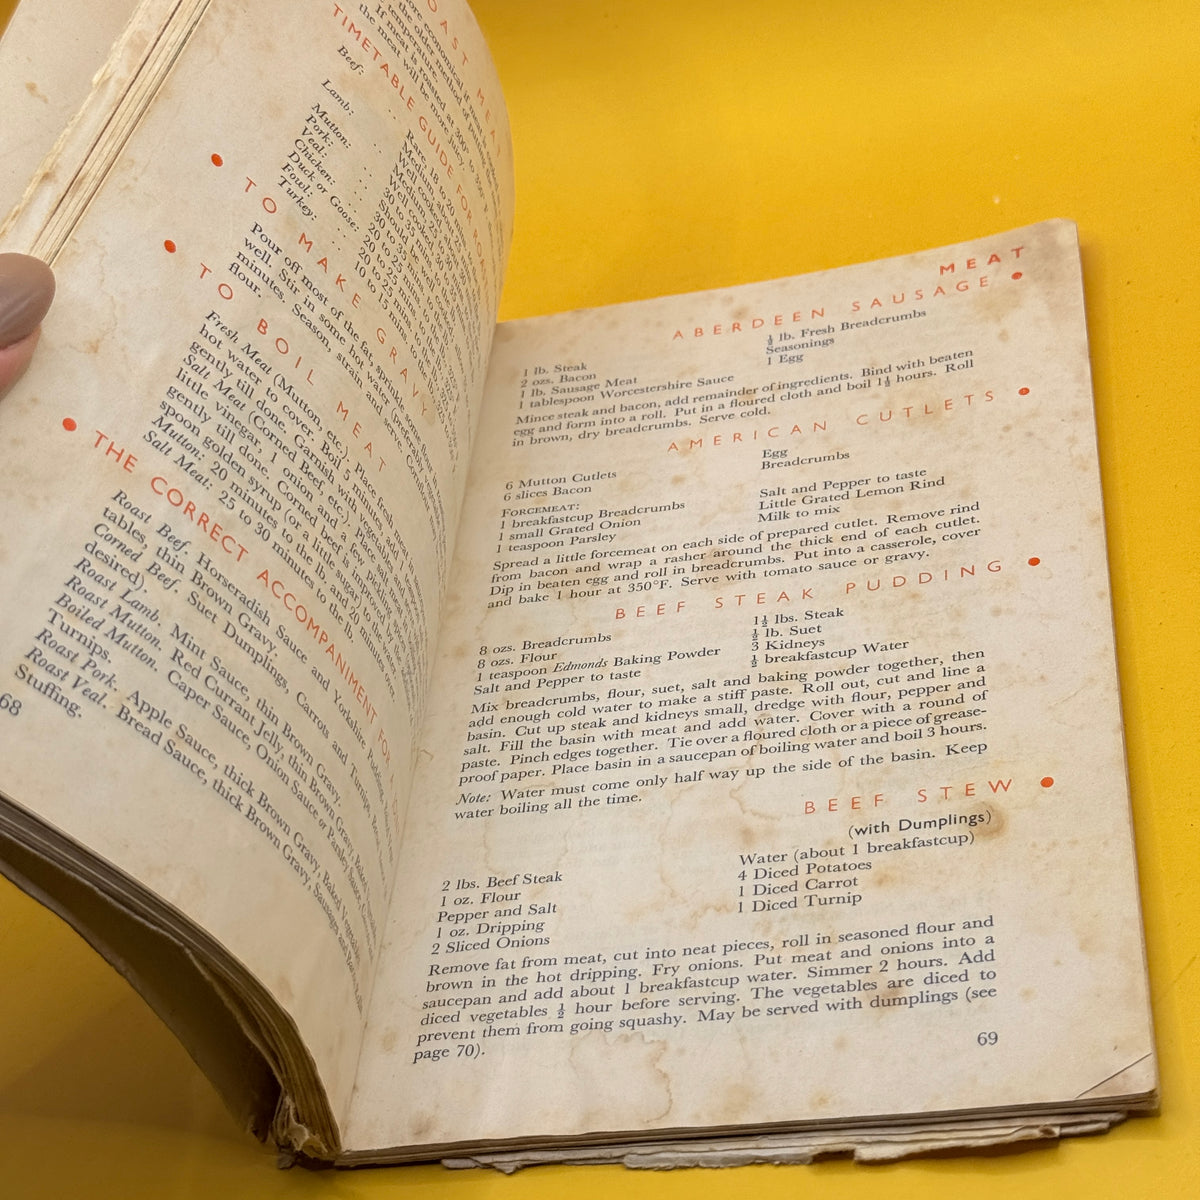 OAST MEAT
ore economical if meat is
the older method of
temperature.
If meat is roasted at 300° to
the meat will be more juicy.
TIMETABLE GUIDE FOR
Beef:
Rare, 18 to
Medium, about 25
Well cooked, 30
Lamb:
Medium, 25 to 30
Well cooked, 30
Mutton:
30 to 35 mins.
Pork:
Should be well
Veal:
30 to 35 mins.
Chicken:
20 to 25 mins.
Duck or Goose:
20 to 25 mins.
Fowl:
20 to 25 mins.
Turkey:
10 to 15 mins. to the lb.
TO MAKE GRAVY
Pour off most of the fat, sprinkle some flour in
well. Stir in some hot water (preferably
minutes. Season, strain and serve. Cornflour
flour.
TO BOIL MEAT
Fresh Meat (Mutton, etc.). Place fresh meat in
hot water to cover. Boil 5 minutes, add 1
gently till done. Garnish with vegetables and
Salt Meat (Corned Beef, etc.). Place salt meat
little vinegar, 1 onion and a few
gently till done. Corned beef is improved by
spoon golden syrup (or a little sugar)
Mutton: 20 minutes to the lb. and 20 minutes over.
Salt Meat: 25 to 30 minutes to the lb.
THE CORRECT ACCOMPANIMENT FOR
Roast Beef. Horseradish Sauce and Yorkshire Pudding,
tables, thin Brown Gravy.
Corned Beef. Suet Dumplings, Carrots and Turnips,
desired).
Roast Lamb. Mint Sauce, thin Brown Gravy.
Roast Mutton. Red Currant Jelly, thin Brown Gravy, Baked
Boiled Mutton. Caper Sauce, Onion Sauce or Parsley Sauce,
Turnips.
Roast Pork. Apple Sauce, thick Brown Gravy, Baked Vegetables
Roast Veal. Bread Sauce, thick Brown Gravy, Sausages and
Stuffing.
68
MEAT
ABERDEEN SAUSAGE
1 lb. Steak
2 ozs. Bacon
1 lb. Sausage Meat
1 tablespoon Worcestershire Sauce
½ lb. Fresh Breadcrumbs
Seasonings
1 Egg
Mince steak and bacon, add remainder of ingredients. Bind with beaten
egg and form into a roll. Put in a floured cloth and boil 1½ hours. Roll
in brown, dry breadcrumbs. Serve cold.
AMERICAN CUTLETS
6 Mutton Cutlets
6 slices Bacon
Egg
Breadcrumbs
FORCEMEAT:
1 breakfastcup Breadcrumbs
1 small Grated Onion
1 teaspoon Parsley
Salt and Pepper to taste
Little Grated Lemon Rind
Milk to mix
Spread a little forcemeat on each side of prepared cutlet. Remove rind
from bacon and wrap a rasher around the thick end of each cutlet.
Dip in beaten egg and roll in breadcrumbs. Put into a casserole, cover
and bake 1 hour at 350°F. Serve with tomato sauce or gravy.
BEEF STEAK PUDDING
8 ozs. Breadcrumbs
8 ozs. Flour
1 teaspoon Edmonds Baking Powder
Salt and Pepper to taste
1½ lbs. Steak
½ lb. Suet
3 Kidneys
½ breakfastcup Water
Mix breadcrumbs, flour, suet, salt and baking powder together, then
add enough cold water to make a stiff paste. Roll out, cut and line a
basin. Cut up steak and kidneys small, dredge with flour, pepper and
salt. Fill the basin with meat and add water. Cover with a round of
paste. Pinch edges together. Tie over a floured cloth or a piece of grease-
proof paper. Place basin in a saucepan of boiling water and boil 3 hours.
Note: Water must come only half way up the side of the basin. Keep
water boiling all the time.
BEEF STEW
(with Dumplings)
2 lbs. Beef Steak
1 oz. Flour
Pepper and Salt
1 oz. Dripping
2 Sliced Onions
Water (about 1 breakfastcup)
4 Diced Potatoes
1 Diced Carrot
1 Diced Turnip
Remove fat from meat, cut into neat pieces, roll in seasoned flour and
brown in the hot dripping. Fry onions. Put meat and onions into a
saucepan and add about 1 breakfastcup water. Simmer 2 hours. Add
diced vegetables ½ hour before serving. The vegetables are diced to
prevent them from going squashy. May be served with dumplings (see
page 70).
69